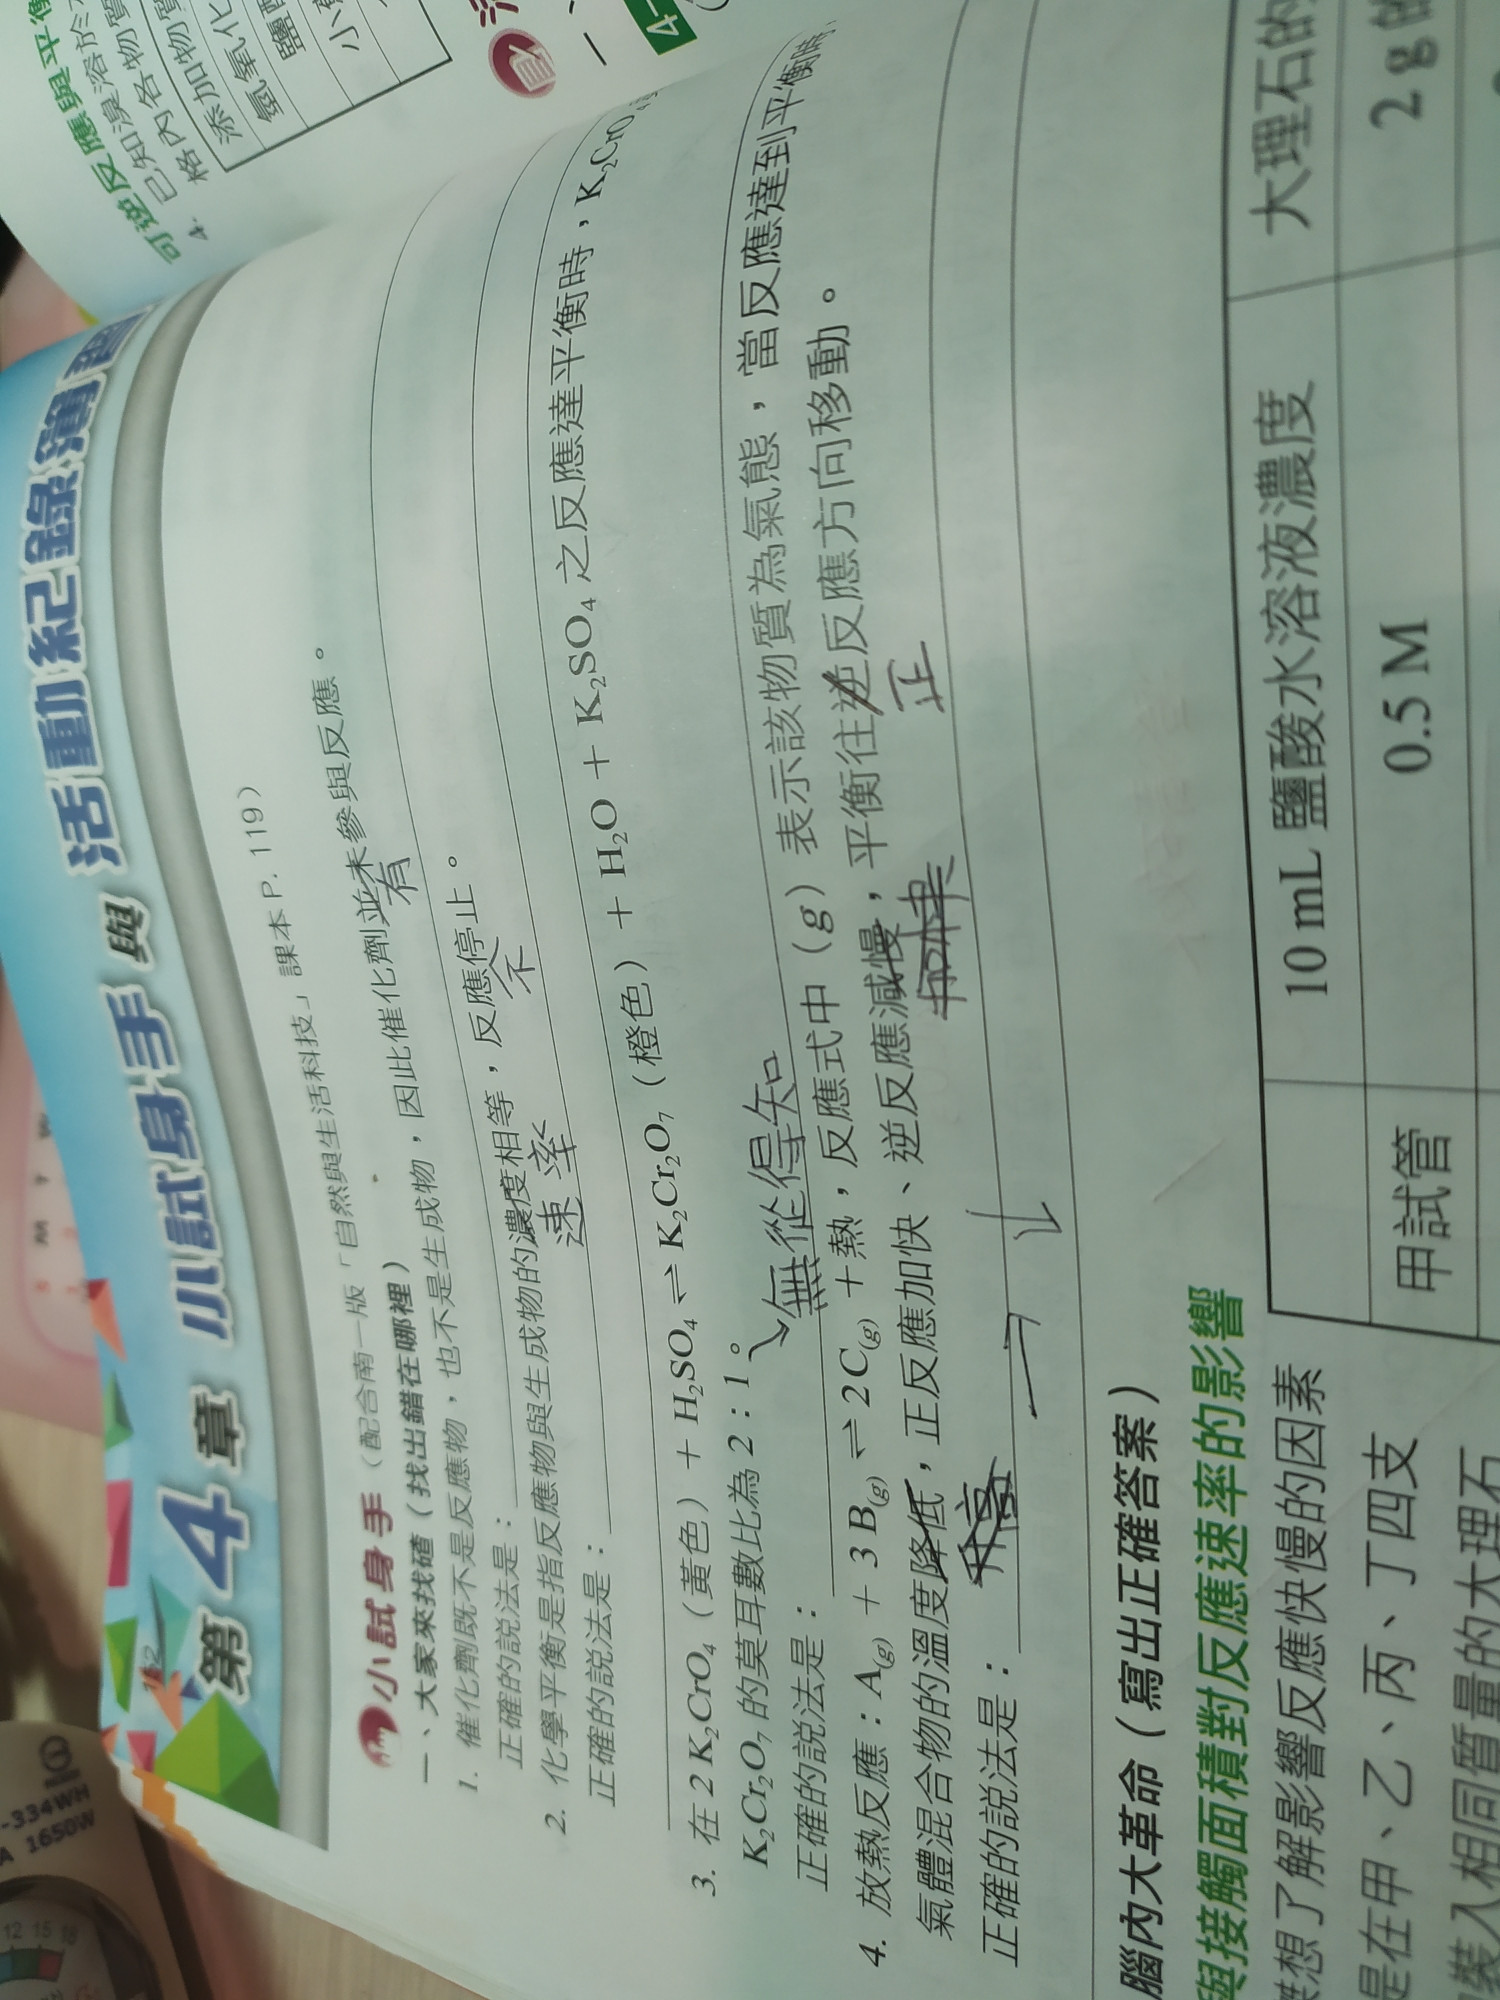 第4章 小試身手 與 活動紀錄簿
152
小試身手（配合南一版「自然與生活科技」課本 P. 119）
一、大家來找碴（找出錯在哪裡）
1. 催化劑既不是反應物，也不是生成物，因此催化劑並未參與反應。
有
正確的說法是：
2. 化學平衡是指反應物與生成物的濃度相等，反應停止。
速率
不
正確的說法是：
3. 在 2 K₂CrO₄（黃色）+ H₂SO₄ ⇌ K₂Cr₂O₇（橙色）+ H₂O + K₂SO₄ 之反應達平衡時，K₂CrO₄
K₂Cr₂O₇ 的莫耳數比為 2：1。
↘無從得知
正確的說法是：
4. 放熱反應：A(g) + 3 B(g) ⇌ 2 C(g) + 熱，反應式中（g）表示該物質為氣態，當反應達到平衡時，
氣體混合物的溫度降低，正反應加快、逆反應減慢，平衡往逆反應方向移動。
正
正確的說法是：
腦內大革命（寫出正確答案）
與接觸面積對反應速率的影響
想了解影響反應快慢的因素
是在甲、乙、丙、丁四支
裝入相同質量的大理石
10 mL 鹽酸水溶液濃度
大理石的
甲試管
0.5 M
2 g 的
可逆反應與平衡
4. 已知溴溶於
格內各物質
添加物質
氫氧化
鹽
小
4-
-334WH
A 1650W
12 15 18